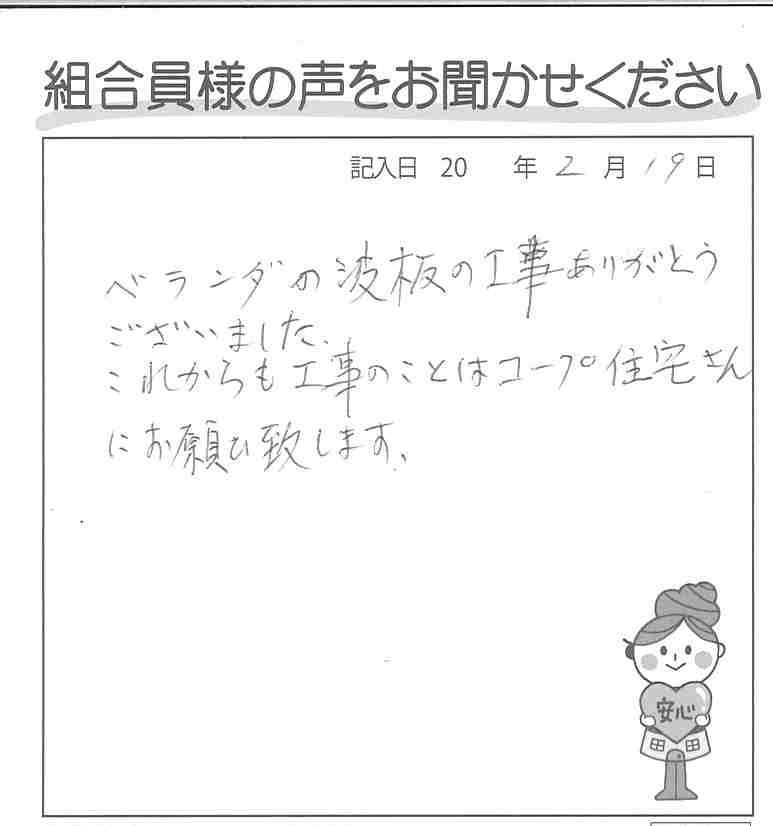 組合員様の声をお聞かせください
記入日 20　年 2 月 19 日
ベランダの波板の工事ありがとう
ございました。
これからも工事のことはコープ住宅さん
にお願い致します。
安心